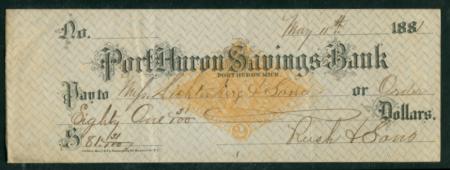 No. May 11th 1881
Port Huron Savings Bank
PORT HURON MICH.
Pay to & Sons or Order
Eighty One 21/100 Dollars.
$ 81.21/100 Rush & Sons